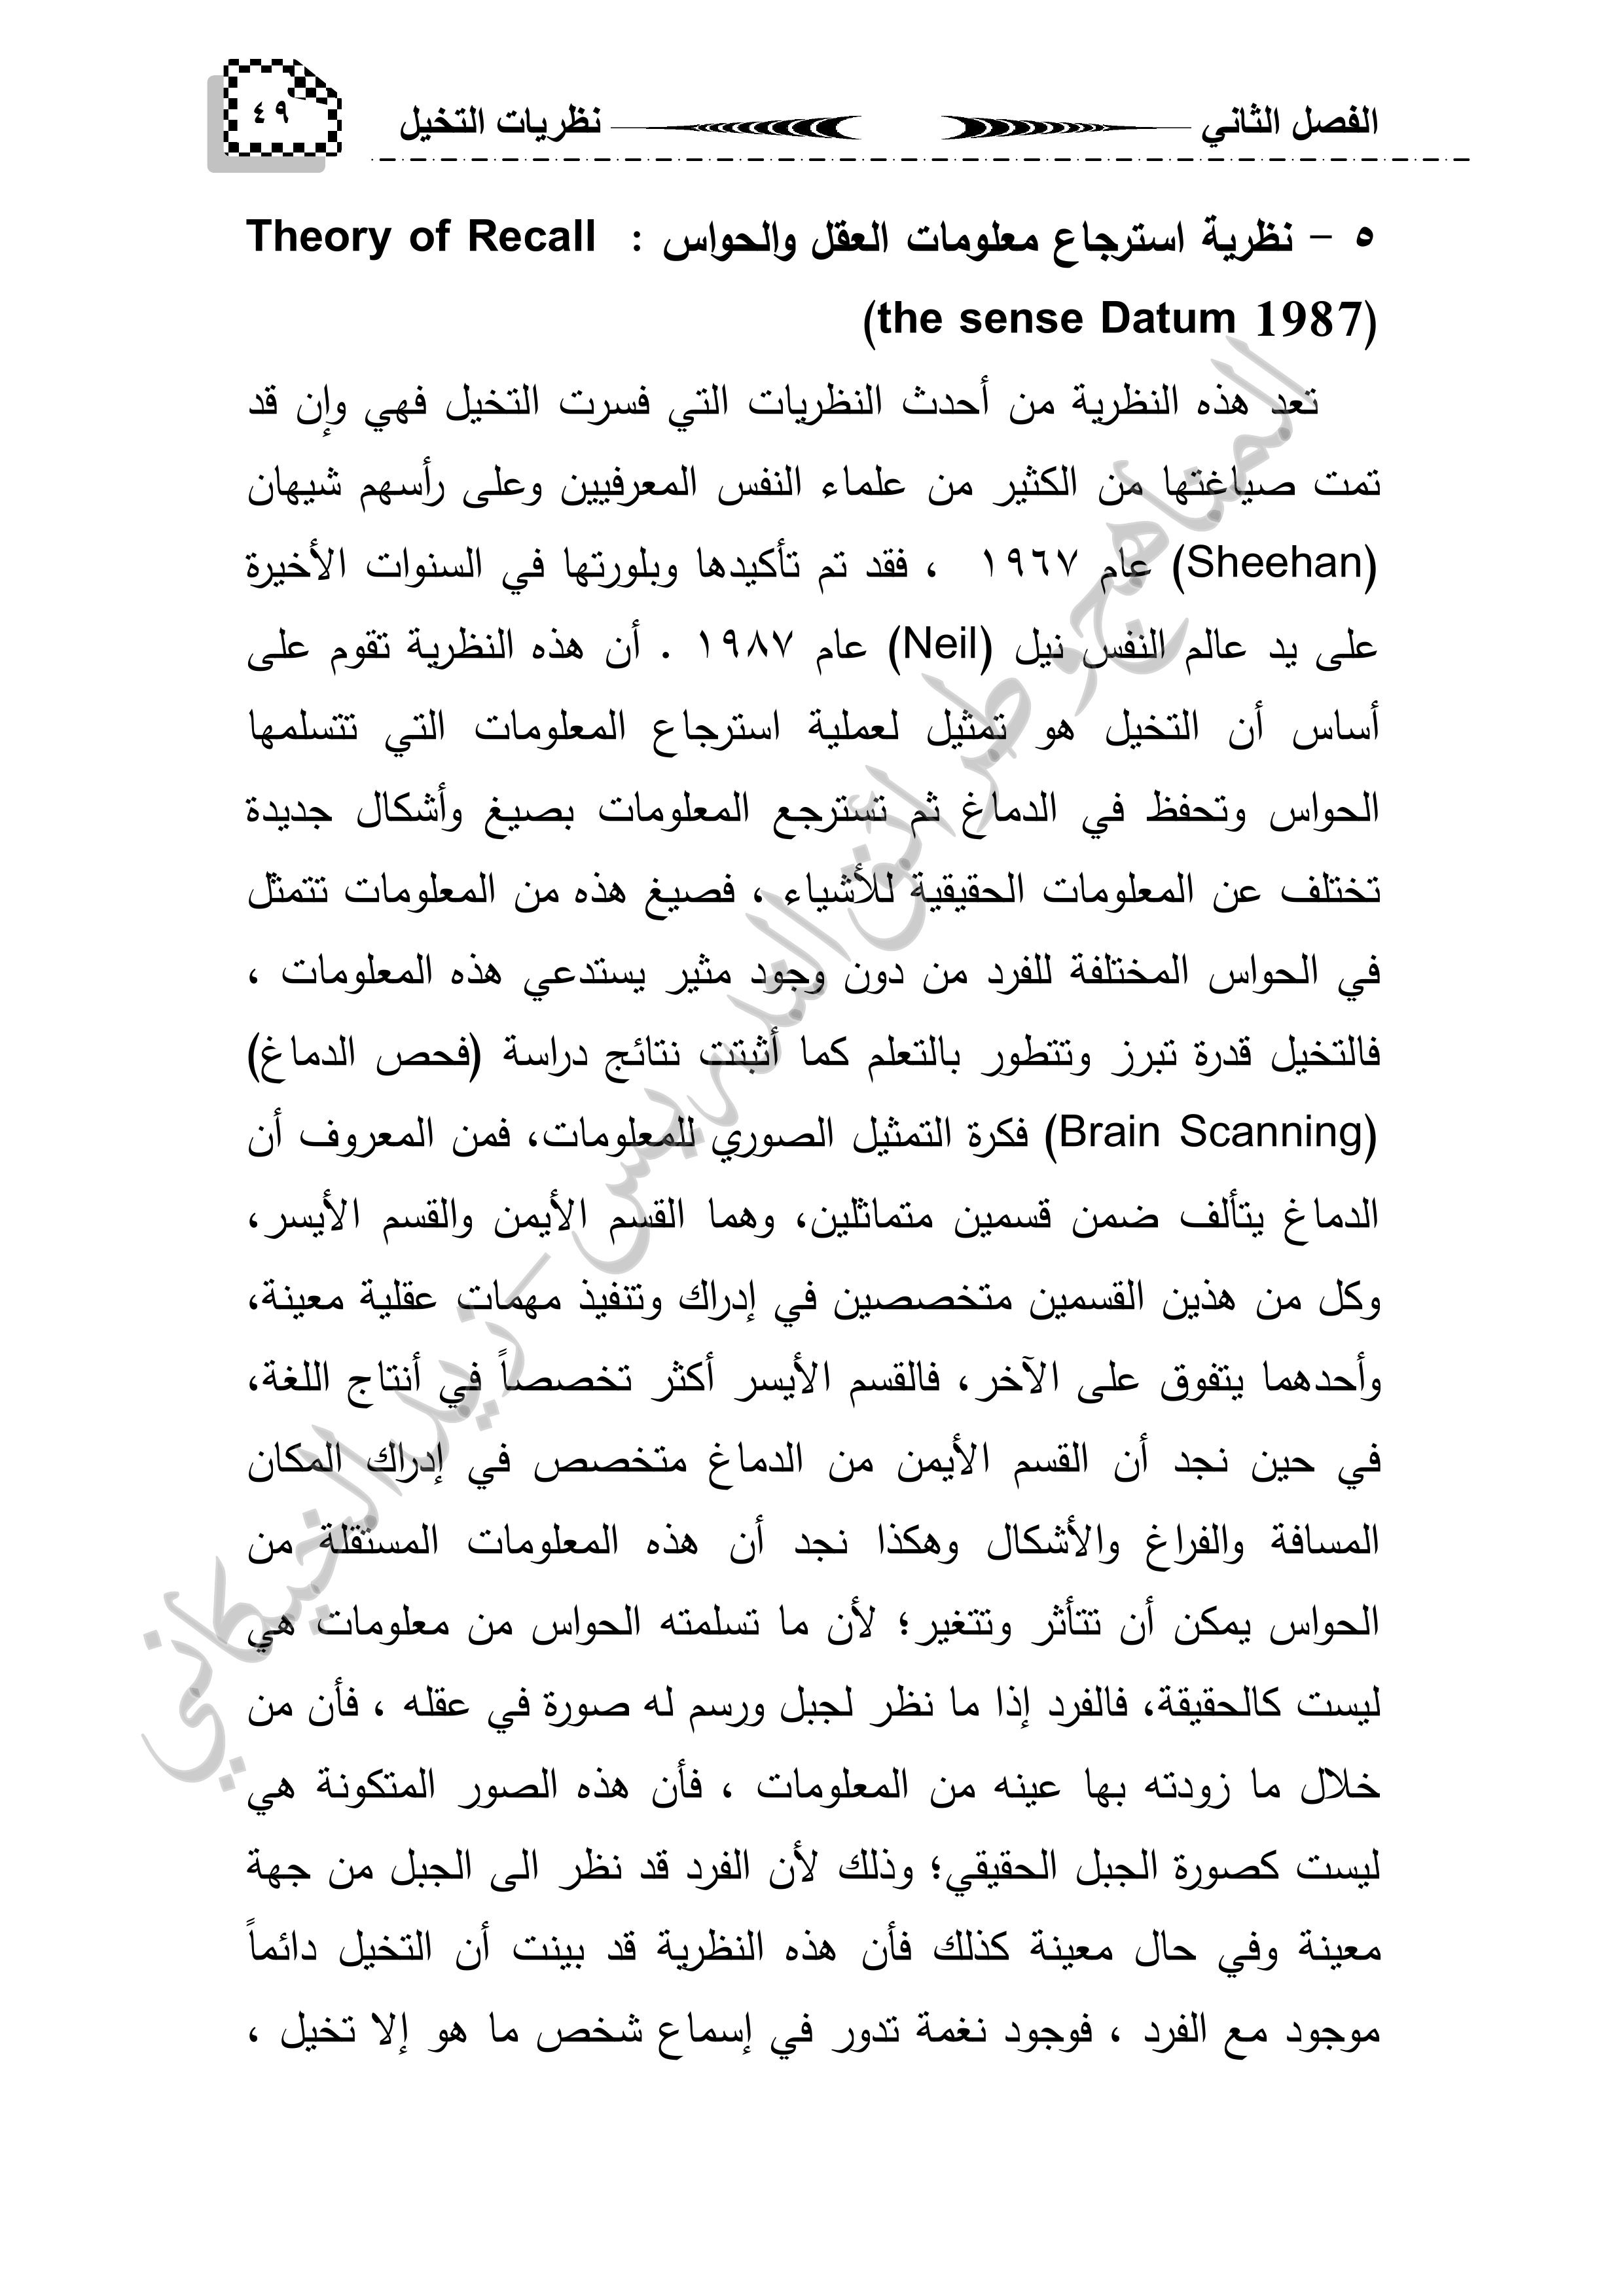 الفصل الثاني نظريات التخيل ٤٩
٥ – نظرية استرجاع معلومات العقل والحواس : Theory of Recall
(the sense Datum 1987)
تعد هذه النظرية من أحدث النظريات التي فسرت التخيل فهي وإن قد
تمت صياغتها من الكثير من علماء النفس المعرفيين وعلى رأسهم شيهان
(Sheehan) عام ١٩٦٧ ، فقد تم تأكيدها وبلورتها في السنوات الأخيرة
على يد عالم النفس نيل (Neil) عام ١٩٨٧ . أن هذه النظرية تقوم على
أساس أن التخيل هو تمثيل لعملية استرجاع المعلومات التي تتسلمها
الحواس وتحفظ في الدماغ ثم تسترجع المعلومات بصيغ وأشكال جديدة
تختلف عن المعلومات الحقيقية للأشياء ، فصيغ هذه من المعلومات تتمثل
في الحواس المختلفة للفرد من دون وجود مثير يستدعي هذه المعلومات ،
فالتخيل قدرة تبرز وتتطور بالتعلم كما أثبتت نتائج دراسة (فحص الدماغ)
(Brain Scanning) فكرة التمثيل الصوري للمعلومات، فمن المعروف أن
الدماغ يتألف ضمن قسمين متماثلين، وهما القسم الأيمن والقسم الأيسر،
وكل من هذين القسمين متخصصين في إدراك وتنفيذ مهمات عقلية معينة،
وأحدهما يتفوق على الآخر، فالقسم الأيسر أكثر تخصصاً في أنتاج اللغة،
في حين نجد أن القسم الأيمن من الدماغ متخصص في إدراك المكان
المسافة والفراغ والأشكال وهكذا نجد أن هذه المعلومات المستقلة من
الحواس يمكن أن تتأثر وتتغير؛ لأن ما تسلمته الحواس من معلومات هي
ليست كالحقيقة، فالفرد إذا ما نظر لجبل ورسم له صورة في عقله ، فأن من
خلال ما زودته بها عينه من المعلومات ، فأن هذه الصور المتكونة هي
ليست كصورة الجبل الحقيقي؛ وذلك لأن الفرد قد نظر الى الجبل من جهة
معينة وفي حال معينة كذلك فأن هذه النظرية قد بينت أن التخيل دائماً
موجود مع الفرد ، فوجود نغمة تدور في إسماع شخص ما هو إلا تخيل ،
المناهج وطرائق التدريس - زيد الخيكاني